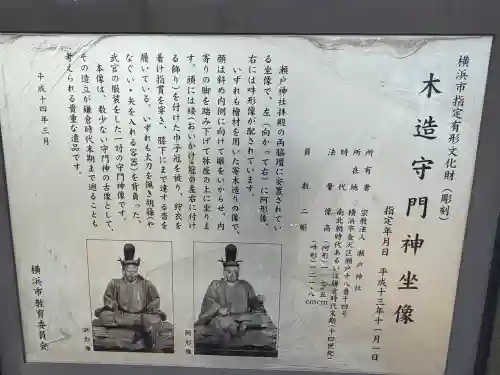 横浜市指定有形文化財(彫刻)
木造守門神坐像
指定年月日 平成十三年十一月一日
所有者 宗教法人 瀬戸神社
所在地 横浜市金沢区瀬戸十八番十四号
時代 南北朝時代あるいは鎌倉時代末期(十四世紀)
法量 像高(阿形)
(吽形)
員数 二軀
瀬戸神社拝殿の両脇壇に安置されてい
る坐像で、左(向かって右)に阿形像、
右には吽形像が配されています。
いずれも檜材を用いた寄木造りの像で、
顔は斜め内側に向けて眼をいからせ、内
寄りの脚を踏み下げて牀座の上に坐りま
す。頭には緌(おいかけ:冠の左右に付け
る飾り)を付けた巾子冠を被り、狩衣を
着け指貫を穿き、膝下にまで達する沓を
履いている。いずれも太刀を佩き胡簶(や
なぐい・矢を入れる容器)を背負った、
武官の服装をした一対の守門神像です。
本像は、数少ない守門神の古像として、
その造立が鎌倉時代末期まで遡ることも
考えられる貴重な遺品です。
平成十四年三月
横浜市教育委員会
吽形像
阿形像